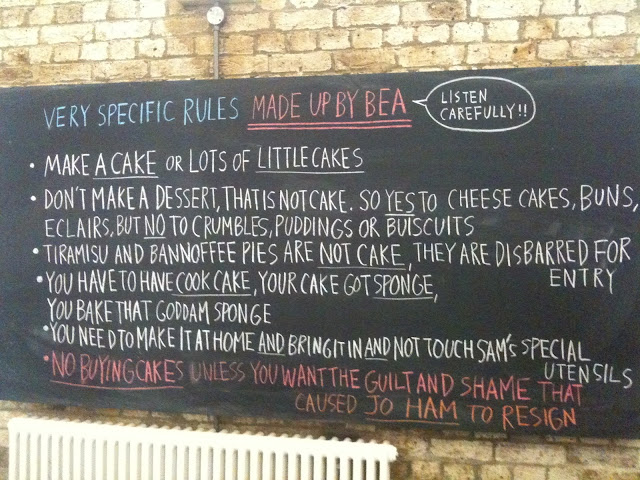 VERY SPECIFIC RULES MADE UP BY BEA
LISTEN
CAREFULLY!!
• MAKE A CAKE OR LOTS OF LITTLE CAKES
• DON'T MAKE A DESSERT, THAT IS NOT CAKE. SO YES TO CHEESE CAKES, BUNS,
ECLAIRS, BUT NO TO CRUMBLES, PUDDINGS OR BUISCUITS
• TIRAMISU AND BANNOFFEE PIES ARE NOT CAKE, THEY ARE DISBARRED FOR
ENTRY
• YOU HAVE TO HAVE COOK CAKE, YOUR CAKE GOT SPONGE,
YOU BAKE THAT GODDAM SPONGE
• YOU NEED TO MAKE IT AT HOME AND BRING IT IN AND NOT TOUCH SAM'S SPECIAL
UTENSILS
• NO BUYING CAKES UNLESS YOU WANT THE GUILT AND SHAME THAT
CAUSED JO HAM TO RESIGN